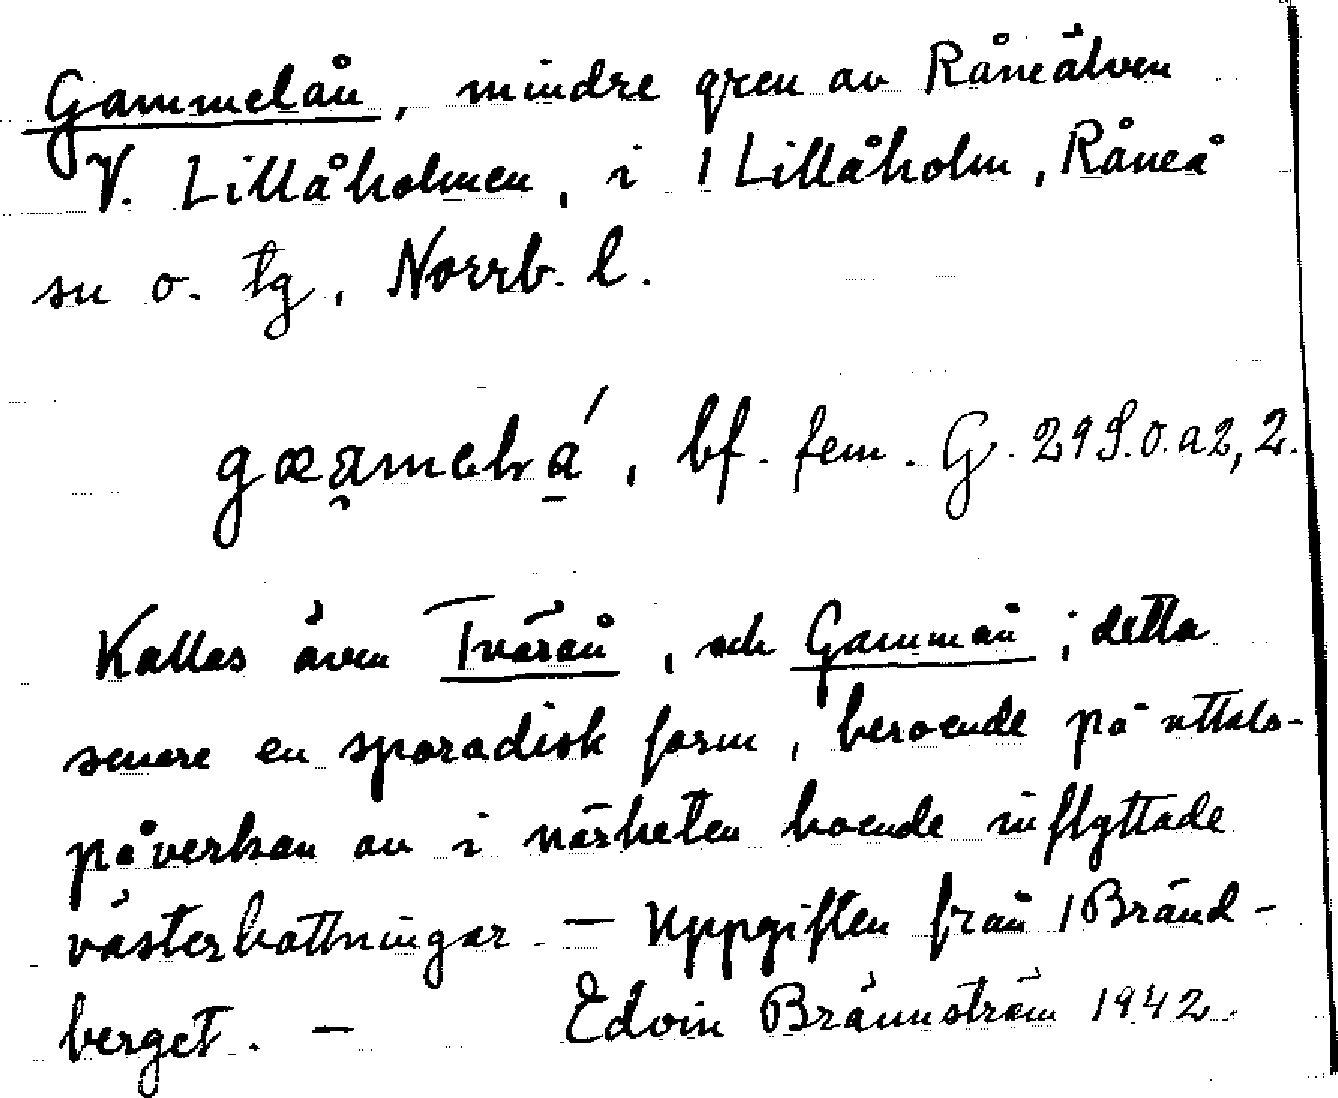 Gammelån, mindre gren av Råneälven
V. Lillåholmen, i 1 Lillåholm, Råneå
sn o. tg, Norrb. l.
bf. fem. G. 295.0.a2,2.
Kallas även Tvärån, och Gammån; detta
senare en sporadisk form, beroende på uttals-
påverkan av i närheten boende inflyttade
västerbottningar – Uppgiften från 1 Bränd-
berget. – Edvin Brännström 1942